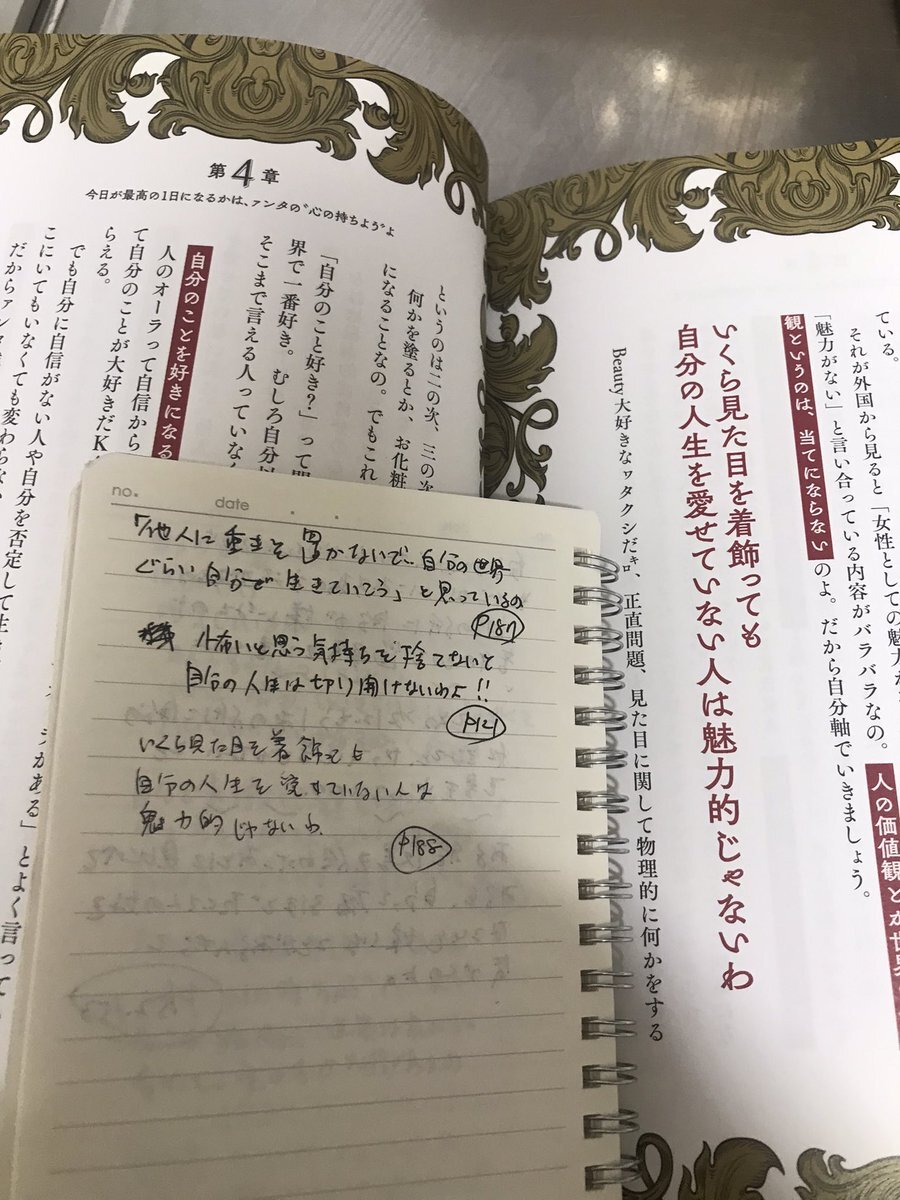 ている。
それが外国から見ると「女性としての魅力が
「魅力がない」と言い合っている内容がバラバラなの。人の価値観とか世界
観というのは、当てにならないのよ。だから自分軸でいきましょう。
いくら見た目を着飾っても
自分の人生を愛せていない人は魅力的じゃないわ
Beauty大好きなワタクシだけど、正直問題、見た目に関して物理的に何かをする
第4章
今日が最高の1日になるかは、アンタの"心の持ちよう"よ
というのは二の次、三の次
何かを塗るとか、お化粧
になることなの。でもこれ
「自分のこと好き?」って
界で一番好き。むしろ自分以
そこまで言える人っていなく
自分のことを好きになる
人のオーラって自信から
て自分のことが大好きだK
らえる。
でも自分に自信がない人や自分を否定して生
こにいてもいなくても変わらない
がある」とよく言って
no.
date
「他人に重きを置かないで、自分の世界
ぐらい自分で生きていこう」と思っているの
P187
怖いと思う気持ちを捨てないと
自分の人生は切り開けないわよ!!
P121
いくら見た目を着飾っても
自分の人生を愛せていない人は
魅力的じゃないわ
P188